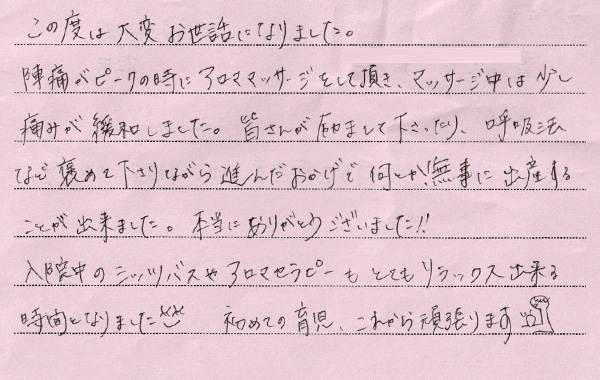 この度は大変お世話になりました。
陣痛がピークの時にアロママッサージをして頂き、マッサージ中は少し
痛みが緩和しました。皆さんが励まして下さったり、呼吸法
など褒めて下さりながら進んだおかげで何とか無事に出産する
ことが出来ました。本当にありがとうございました!!
入院中のシッツバスやアロマセラピーもとてもリラックス出来る
時間となりました 初めての育児、これから頑張ります